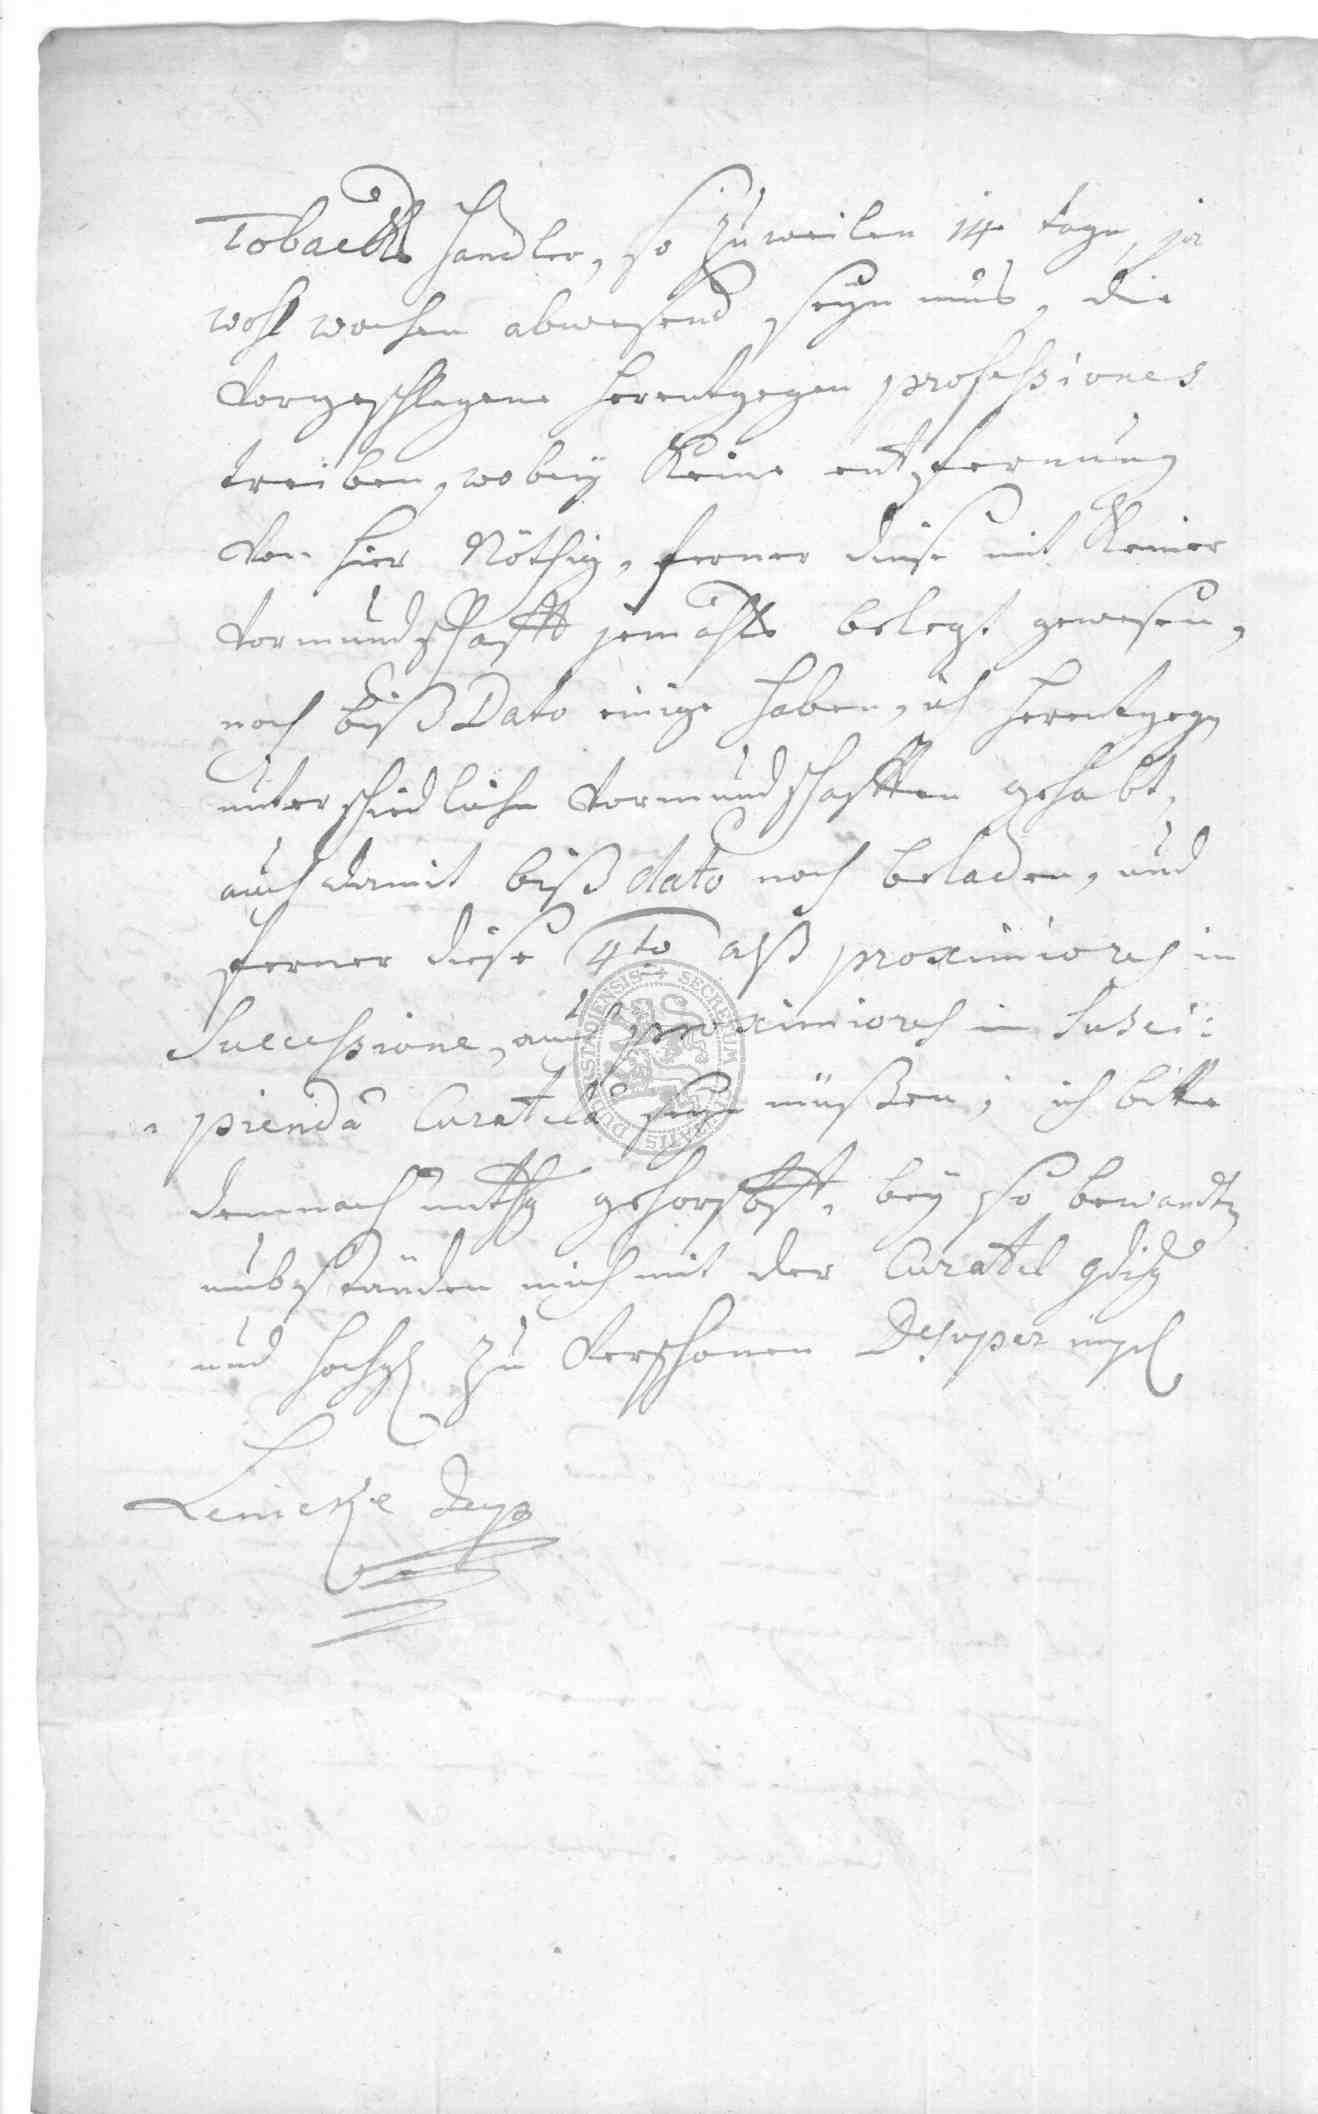 Tobacks Handler, so zuweilen 14 tage, ja
wohl wochen abwesend seyn mus, die
vorgeschlagene herentgegen professiones
treiben, wobey Keine entfernung
von hier Nöthig, ferner diese mit Keiner
vormundschafft jemahls belegt gewesen,
noch biß Dato einige haben, ich herentgegen
unterschiedliche vormundschafften gehabt,
auch damit biß dato noch beladen, und
ferner diese 4to alß proximiores in
Successione, auch proximiores in Susci:
pienda Curatela seyn müßen; ich bitte
demnach gehorsbst, bey so bewandten
umbständen mich mit der Curatel gdig
und hochg zu verschonen Desuper impl
SECRETUM